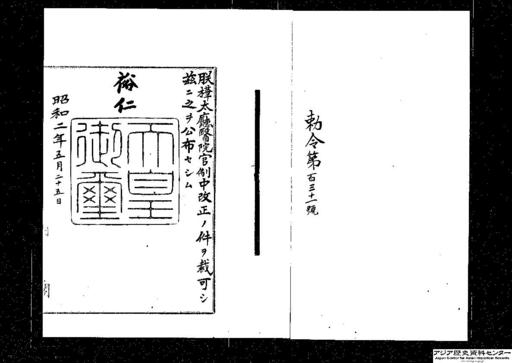 勅令第百三十一號
朕樺太廳醫院官制中改正ノ件ヲ裁可シ
茲ニ之ヲ公布セシム
裕仁
天皇
御璽
昭和二年五月二十五日
アジア歴史資料センター
Japan Center for Asian Historical Records